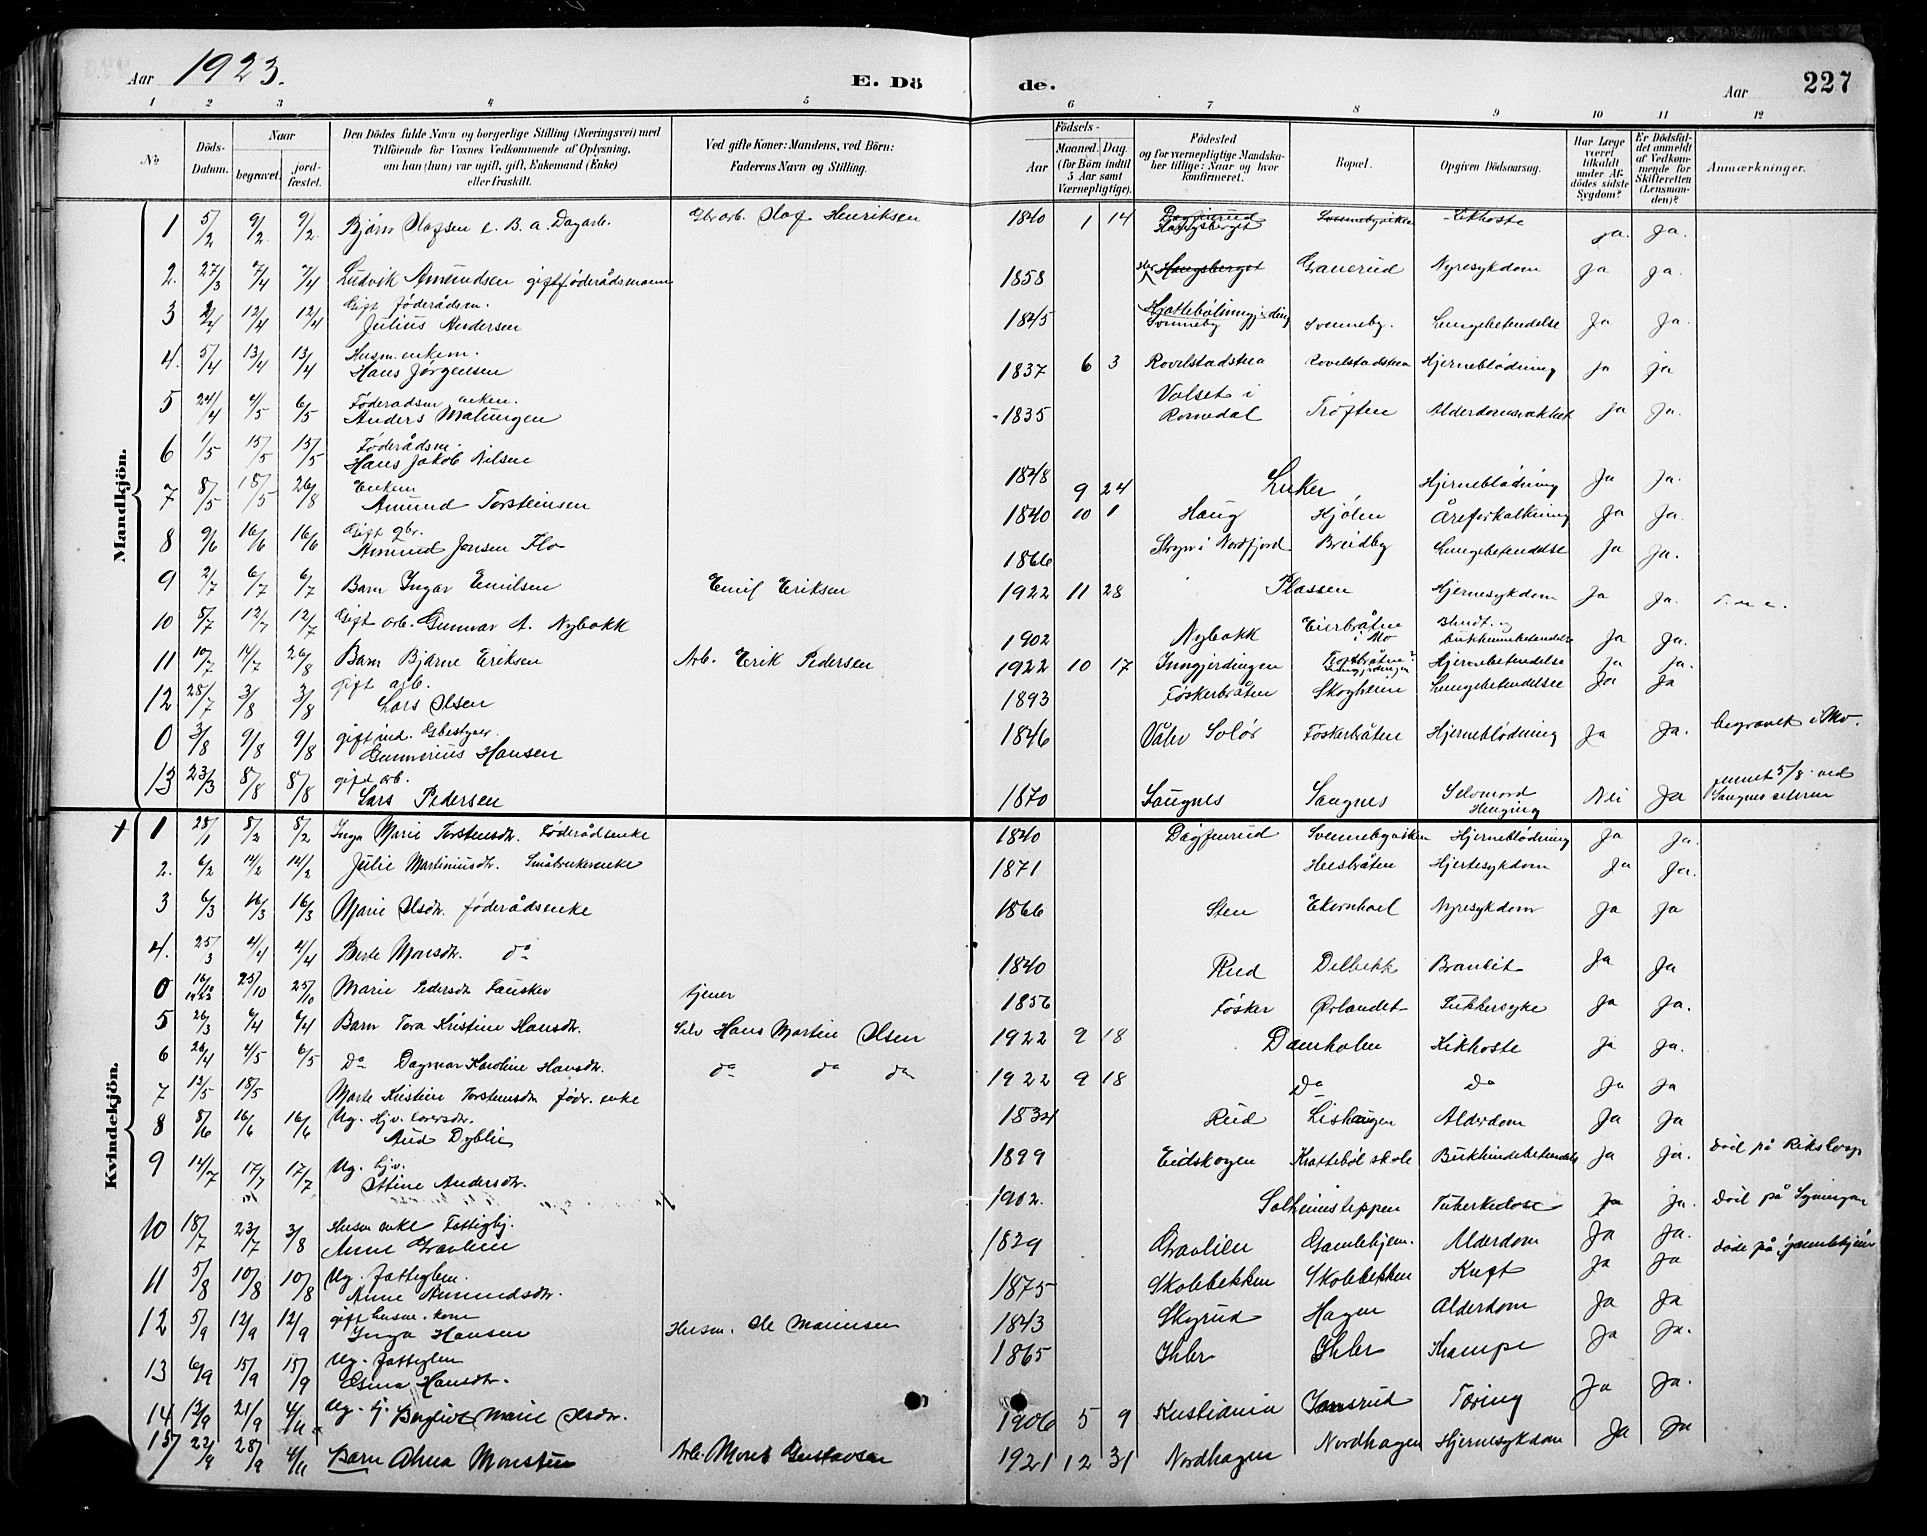 Aar 1923.
E. Dö
de.
Aar
227
1 2 3 4 5 6 7 8 9 10 11 12
No
Döds-Datum.
Naar
begravet.
jord-fæstet.
Den Dödes fulde Navn og borgerlige Stilling (Næringsvei) med
Tilföiende for Voxnes Vedkommende af Oplysning,
om han (hun) var ugift, gift, Enkemand (Enke)
eller fraskilt.
Ved gifte Koner: Mandens, ved Börn:
Faderens Navn og Stilling.
Födsels-
Aar
Maaned. Dag.
(for Börn indtil
5 Aar samt
Værnepligtige).
Födested
og for værnepligtige Mandska-
ber tillige: Naar og hvor
konfirmeret.
Bopæl.
Opgiven Dödsaarsag.
Har Læge
været
tilkaldt
under Af-
dödes sidste
Sygdom?
Er Dödsfal-
det anmeldt
af Vedkom-
mende for
Skifteretten
(Lensman-
den)?
Anmærkninger.
Mandkjön.
1 5/2 9/2 9/2 Bjørn Olafsen Olaf Henriksen 1 14 ja. ja.
2. 27/3 7/4 7/4 Ludvik Amundsen gift føderådsmann 1858 Haugsberget Granerud Nyresykdom ja ja.
3 2/4 12/4 12/4 Gift føderådsm.
Julius Andersen 1845 Svenneby Svenneby. Lungebetendelse Ja ja.
4. 5/4 13/4 13/4 Husm. enkem.
Hans Jørgensen 1837 6 3 Rovelstadstua Rovelstadstua Hjerneblödning ja ja
5 24/4 4/5 6/5 Føderadsm enkem.
Anders Malungen 1835 Valset i Romedal Trøften Alderdomssvakhet ja ja.
6 1/5 15/5 15/5 Føderådsm.
Hans Jakob Nilsen 1848 9 24 Luker Hjerneblødning Ja ja.
7 8/5 15/5 26/8 Enkem
Amund Torsteinsen 1840 10 1 Haug Kjølen Åreforkalkning Ja Ja.
8 9/6 16/6 16/6 Gift gbr.
Amund Jonsen Flo 1866 Stryn i Nordfjord Breidby Lungebetendelse Ja ja.
9 2/7 6/7 6/7 Barn Ingar Emilsen Emil Eriksen 1922 11 28 Plassen Hjernesykdom Ja Ja.
10 8/7 12/7 12/7 Gift arb. Gunnar A. Nybakk 1902 Nybakk i Mo ja Ja.
11 10/7 14/7 26/8 Barn Bjarne Eriksen Arb. Erik Pedersen 1922 10 17 Inngjerdingen Hjernebetendelse ja ja.
12 28/7 3/8 3/8 gift arb.
Lars Olsen 1893 Føskerbråten Skogheim Lungebetendelse Ja Ja
0 3/8 9/8 9/8 gift Gbestyrer.
Gunnerius Hansen 1846 Våler Solør Føskerbråten Hjerneblødning Ja Ja. begravet i Mo.
13 23/3 8/8 8/8 gift arb.
Lars Pedersen 1870 Saugnes Saugnes Selvmord Henging Nei Ja funnet 5/8 ved Saugnes seteren
Kvindekjön.
+ 1 28/1 8/2 8/2 Inga Marie Torstensdtr. Føderådsenke 1840 Dagfinrud Hjerneblödning Ja Ja.
2. 6/2 14/2 14/2 Julie Martiniusdtr. Småbrukerenke 1871 Heesbråten Hjertesykdom Ja Ja.
3 6/3 16/3 16/3 Marie Olsdtr. føderådsenke 1866 Sten Ekornhoel Nyresykdom Ja Ja
4. 25/3 4/4 4/4 Berte Monsdtr. do 1840 Rud Delbekk Ja Ja
0 16/10 1922 25/10 25/10 Marie Pedersdtr Fausker tjener 1856 Føsker Ørlandet Sukkersyke Ja Ja.
5 26/3 6/4 6/4 Barn Tora Kristine Hansdtr. Selv Hans Martin Olsen 1922 9 18 Damholen Kikhoste ja Ja.
6 26/4 4/5 6/5 Do Dagmar Karoline Hansdtr. do do do 1922 9 18 Do do Ja Ja
7 12/5 18/5 Marte Kristine Torstensdtr födr. enke 1834 Rud Lishaugen Alderdom Ja Ja
8 8/6 16/6 16/6 Ug.
Aud Dyblie 1899 Eidskogen Krattebøl skole Bukhindebetendelse Ja ja. død på Rikshosp.
9 12/7 17/7 17/7 Ug. hjv.
Ottine Andersdtr. 1902. Solheimsteppen Tuberkulose Ja ja.
10 18/7 23/7 3/8 Husm enke Fattighj.
Anne Gravlien 1829 Gravlien Gamlehjem. Alderdom Ja Ja. døde på Gamlehjem
11 5/8 10/8 10/8 Ug. fattiglem.
Anne Amundsdtr. 1875 Skolebekken Skolebekken Kreft Ja Ja
12 5/9 12/9 12/9 gift husm. kone
Inga Hansen Husm. Ole Marinsen 1843 Skyrud Hagen Alderdom Ja Ja
13 6/9 15/9 15/9 Ug. fattiglem
Hansdtr. 1865 Ihler Ihler Krampe Ja Ja.
14 13/9 21/9 4/11 Ug. tj. Bergliot Marie Olsdtr. 1906 5 9 Kristiania Tæring Ja Ja.
15 22/9 28/9 4/11 Barn Alma Monsen Arb. Mons Gustavsen 1921 12 31 Nordhagen Nordhagen Hjernesykdom Ja Ja